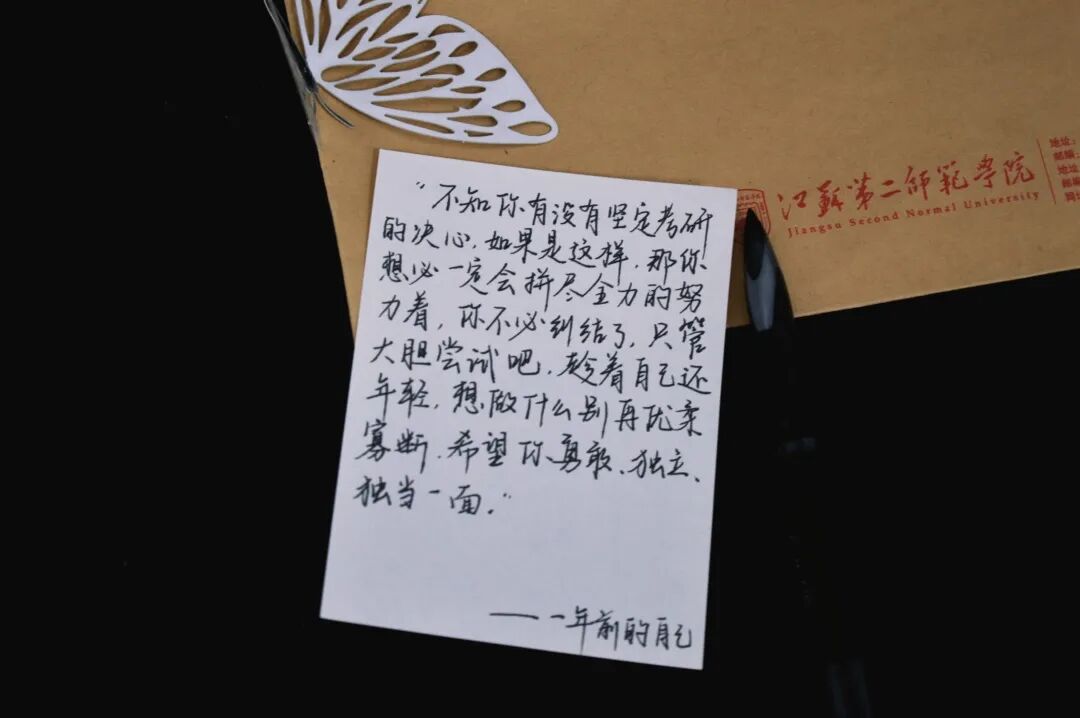 江苏第二师范学院
Jiangsu Second Normal University
地址:
邮编:
地址
邮编
“不知你有没有坚定考研
的决心,如果是这样,那你
想必一定会拼尽全力的努
力着,你不必纠结了,只管
大胆尝试吧,趁着自己还
年轻,想做什么别再优柔
寡断,希望你勇敢、独立、
独当一面。”
——一年前的自己